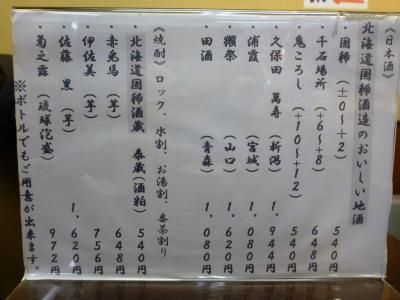 《日本酒》
北海道国稀酒造のおいしい地酒
国稀 （±0～+2） 540円
千石場所 （+6～+8） 648円
鬼ころし （+10～+12） 540円
久保田 萬寿 （新潟） 1,944円
浦霞 （宮城） 1,080円
獺祭 （山口） 1,620円
田酒 （青森） 1,080円
《焼酎》 ロック、水割、お湯割、番茶割り
北海道国稀酒蔵 泰蔵（酒粕） 540円
赤兎馬 （芋） 648円
伊佐美 （芋） 756円
佐藤 黒 （芋） 1,620円
菊之露 （琉球泡盛） 972円
※ボトルでもご用意が出来ます。